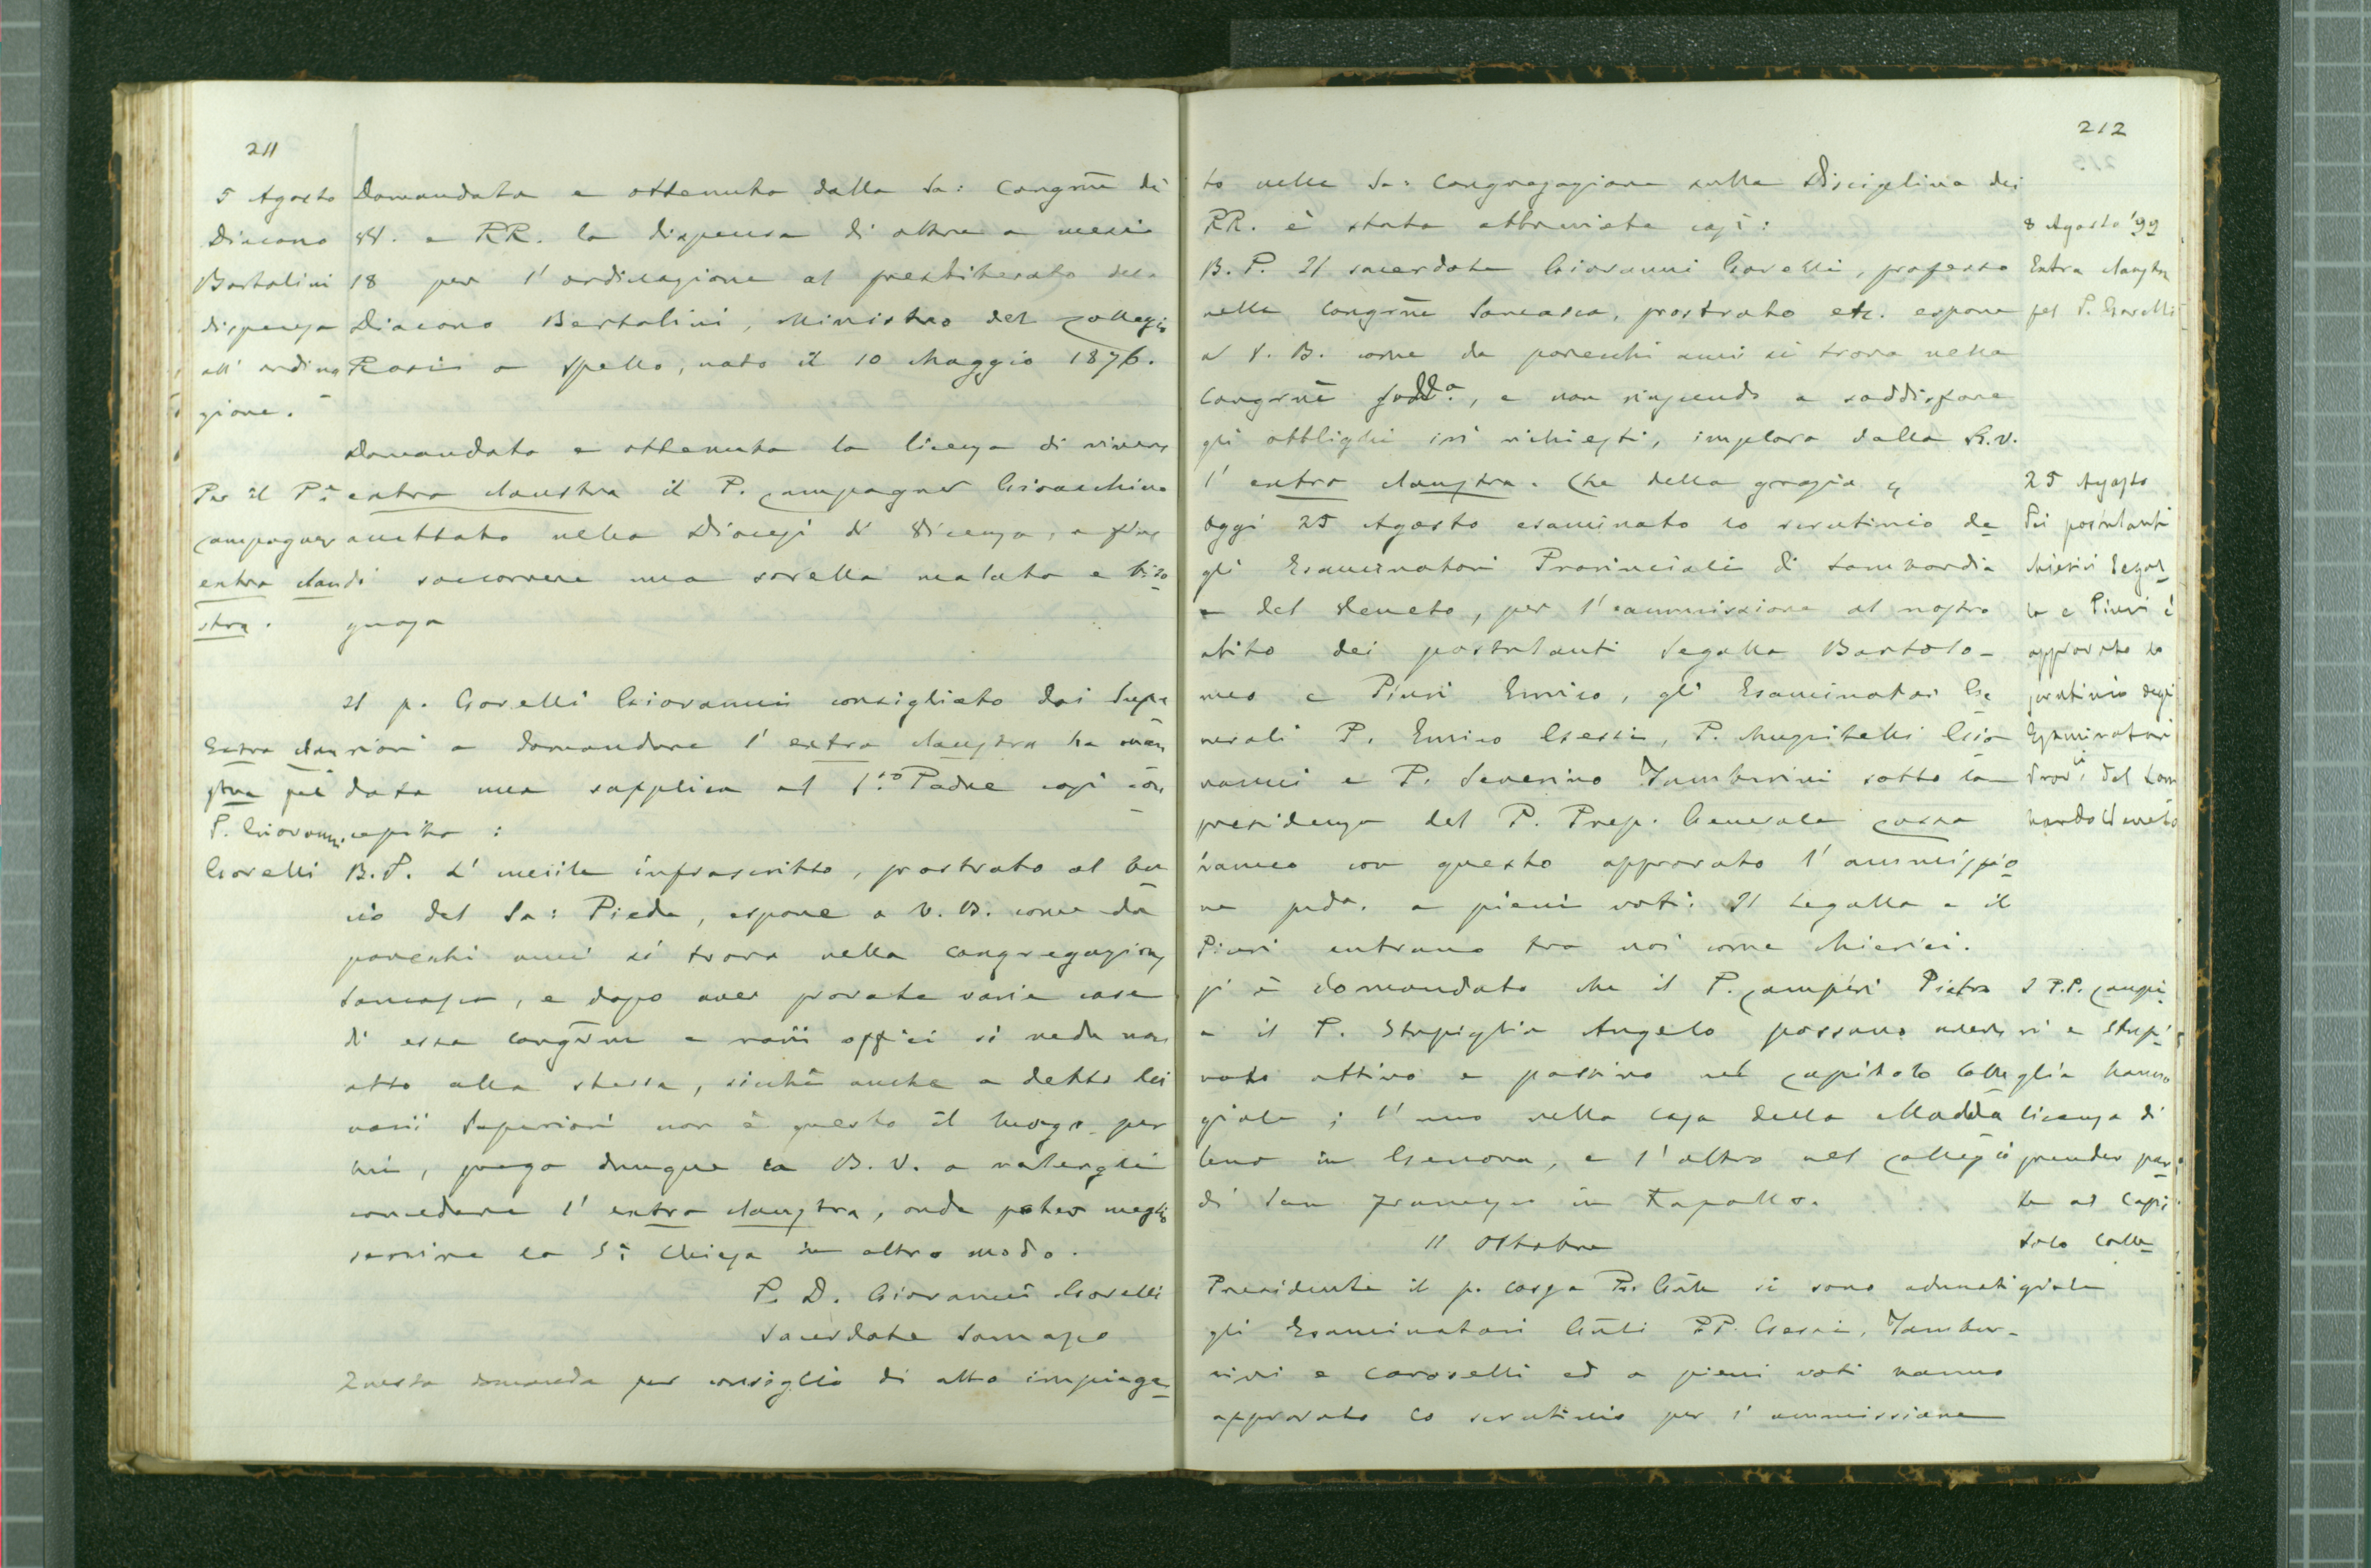 211
5 Agosto
Diacono
Bartolini
dispensa
all' ordina
zione.
Domandata e ottenuta dalla Sa: Congrne di
VV. e RR. la dispensa di oltre a mesi
18 per l' ordinazione al presbiterato del
Diacono Bertolini, Ministro del Collegio
Rosi a Spello, nato il 10 Maggio 1876.
Per il P.
Campagner
extra clau
stra.
Domandata e ottenuta la licenza di vivere
extra claustra il P. Campagner Gioacchino
accettato nella Diocesi di Vicenza, a fine
di soccorrere una sorella malata e biso
gnosa
Extra clau
stra pel
P. Giovanni
Gorelli
Il p. Gorelli Giovanni consigliato dai Supe
riori a domandare l' extra claustra ha man
data una supplica al S.to Padre così con
cepita:
B.P. L' umile infrascritto, prostrato al ba
cio del Sa: Piede, espone a V.B. come da
parecchi anni si trova nella Congregazione
Somasca, e dopo aver provate varie case
di essa Congrne e varii offici si vede non
atto alla stessa, sicchè anche a detto dei
varii Superiori non è questo il luogo per
lui, prega dunque la B.V. a volergli
concedere l' extra claustra, onde poter meglio
servire la S. Chiesa in altro modo.
P. D. Giovanni Gorelli
Sacerdote Somasco
Questa domanda per consiglio di alto impiega
212
to nella Sa: Congregazione sulla Disciplina dei
RR. è stata abbreviata così:
B.P. Il sacerdote Giovanni Gorelli, professo
nella Congrne Somasca, prostrato etc. espone
a V.B. come da parecchi anni si trova nella
Congrne sudda, e non riuscendo a soddisfare
gli obblighi ivi richiesti, implora dalla B.V.
l' extra claustra. Che della grazia
8 Agosto '99
Extra claustra
pel P. Gorelli
Oggi 25 Agosto esaminato lo scrutinio de
gli Esaminatori Provinciali di Lombardia
e del Veneto, per l' ammissione al nostro
abito dei postulanti Segalla Bartolo-
meo e Piuri Enrico, gli Esaminatori Ge
nerali P. Enrico Gessi, P. Muzzitelli Gio
vanni e P. Severino Tamburrini sotto la
presidenza del P. Prep. Generale Cossa
hanno con questo approvato l' ammissio
ne pda. a pieni voti: Il Segalla e il
Piuri entrano tra noi come chierici.
25 Agosto
Dei postulanti
chierici Segal
la e Piuri è
approvato lo
scrutinio degli
Esaminatori
Provi. del Lom
bardo Veneto
Si è domandato che il P. Camperi Pietro
e il P. Stupiglia Angelo possano avere
voto attivo e passivo nel Capitolo Colle
giale; l' uno nella casa della Madda
lena in Genova, e l' altro nel Collegio
di San Francesco in Rapallo.
I P.P. Campe
ri e Stupi
glia hanno
licenza di
prender par
te al Capi
tolo Colle
giale
11 Ottobre
Presidente il p. Cossa Pr. Gnle si sono adunati
gli Esaminatori Gnli PP. Gessi, Tambur-
rini e Caroselli ed a pieni voti hanno
approvato lo scrutinio per l' ammissione